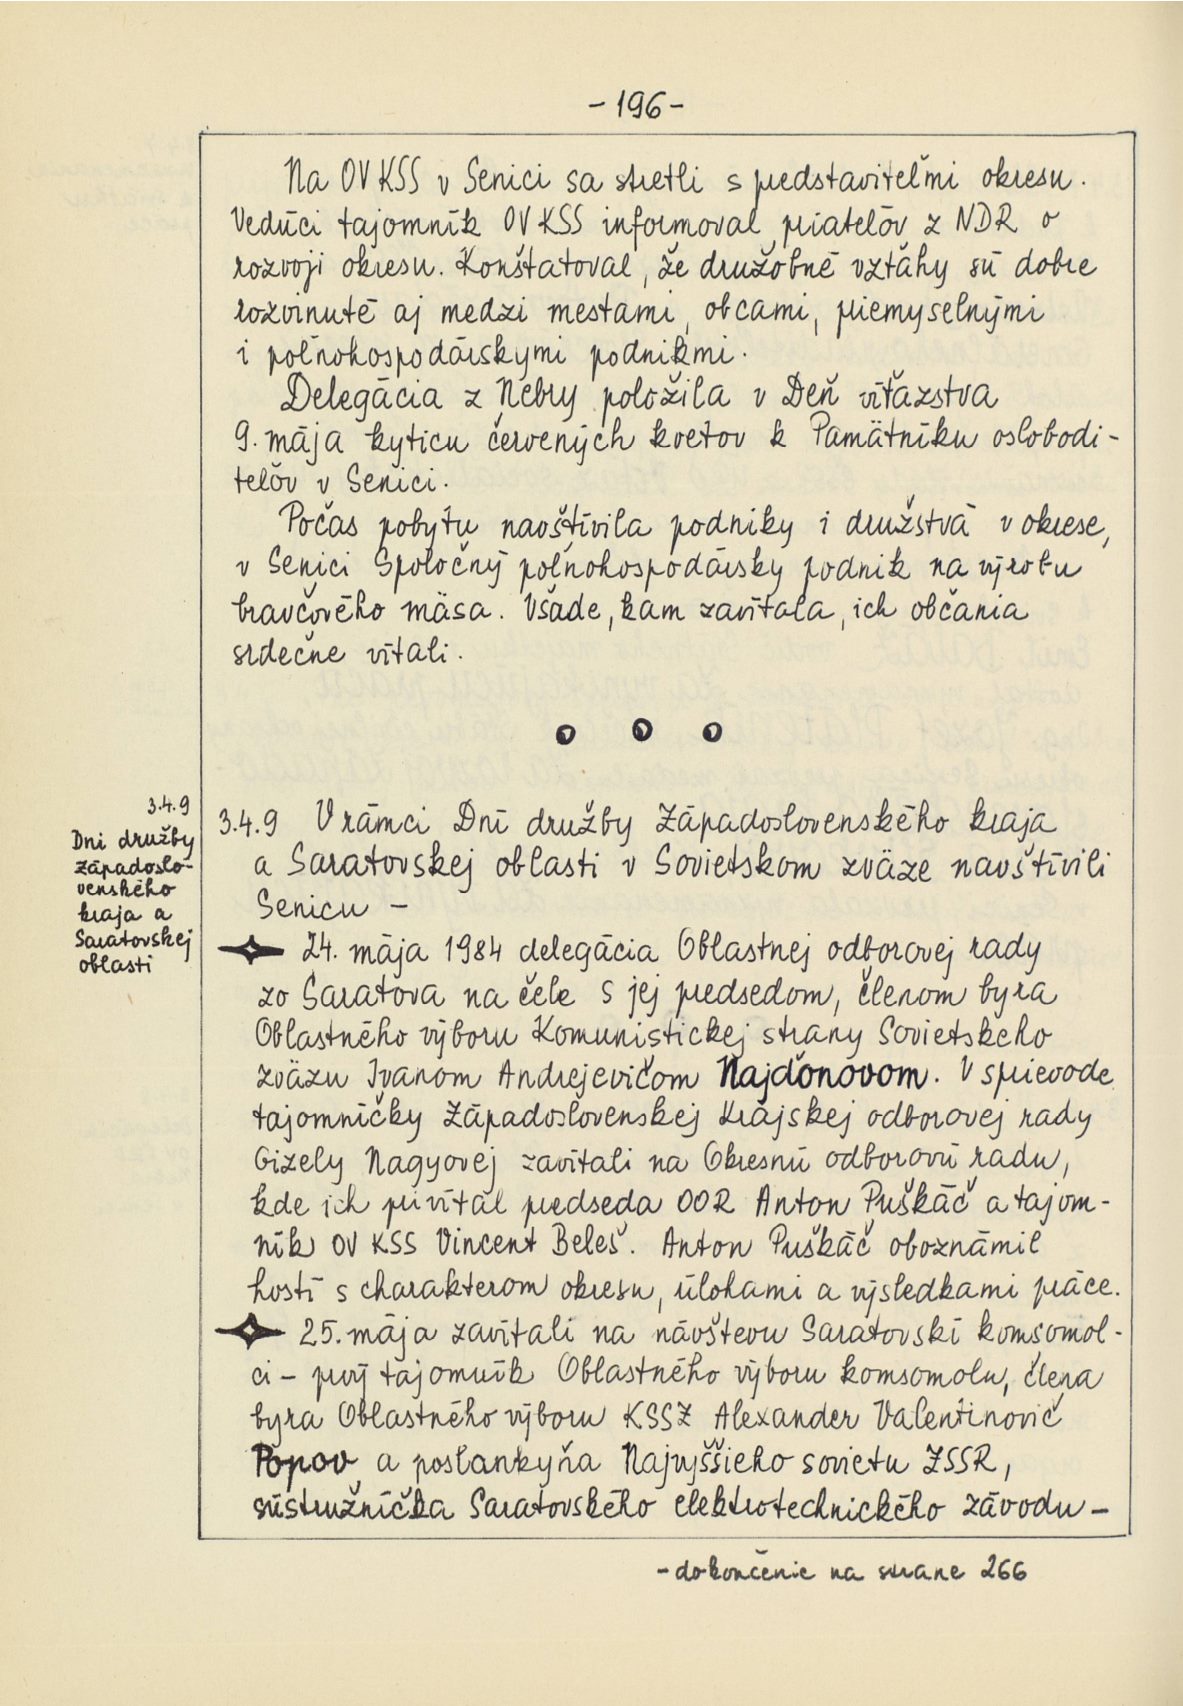 -196-
Na OV KSS v Senici sa stretli s predstaviteľmi okresu.
Vedúci tajomník OV KSS informoval priateľov z NDR o
rozvoji okresu. Konštatoval, že družobné vzťahy sú dobre
rozvinuté aj medzi mestami, obcami, priemyselnými
i poľnohospodárskymi podnikmi.
Delegácia z Nebry položila v Deň víťazstva
9. mája kyticu červených kvetov k Pamätníku oslobodi-
teľov v Senici.
Počas pobytu navštívila podniky i družstvá v okrese,
v Senici Spoločný poľnohospodársky podnik na výrobu
bravčového mäsa. Všade, kam zavítala, ich občania
srdečne vítali.
3.4.9
Dni družby
Západoslo-
venského
kraja a
Saratovskej
oblasti
3.4.9 V rámci Dní družby Západoslovenského kraja
a Saratovskej oblasti v Sovietskom zväze navštívili
Senicu -
24. mája 1984 delegácia Oblastnej odborovej rady
zo Saratova na čele s jej predsedom, členom byra
Oblastného výboru Komunistickej strany Sovietskeho
zväzu Ivanom Andrejevičom Najďonovom. V sprievode
tajomníčky Západoslovenskej Krajskej odborovej rady
Gizely Nagyovej zavítali na Okresnú odborovú radu,
kde ich privítal predseda OOR Anton Puškáč a tajom-
ník OV KSS Vincent Beleš. Anton Puškáč oboznámil
hostí s charakterom okresu, úlohami a výsledkami práce.
25. mája zavítali na návštevu Saratovskí komsomol-
ci - prvý tajomník Oblastného výboru komsomolu, člena
byra Oblastného výboru KSSZ Alexander Valentinovič
Popov a poslankyňa Najvyššieho sovietu ZSSR,
sústružníčka Saratovského elektrotechnického závodu -
- dokončenie na strane 266